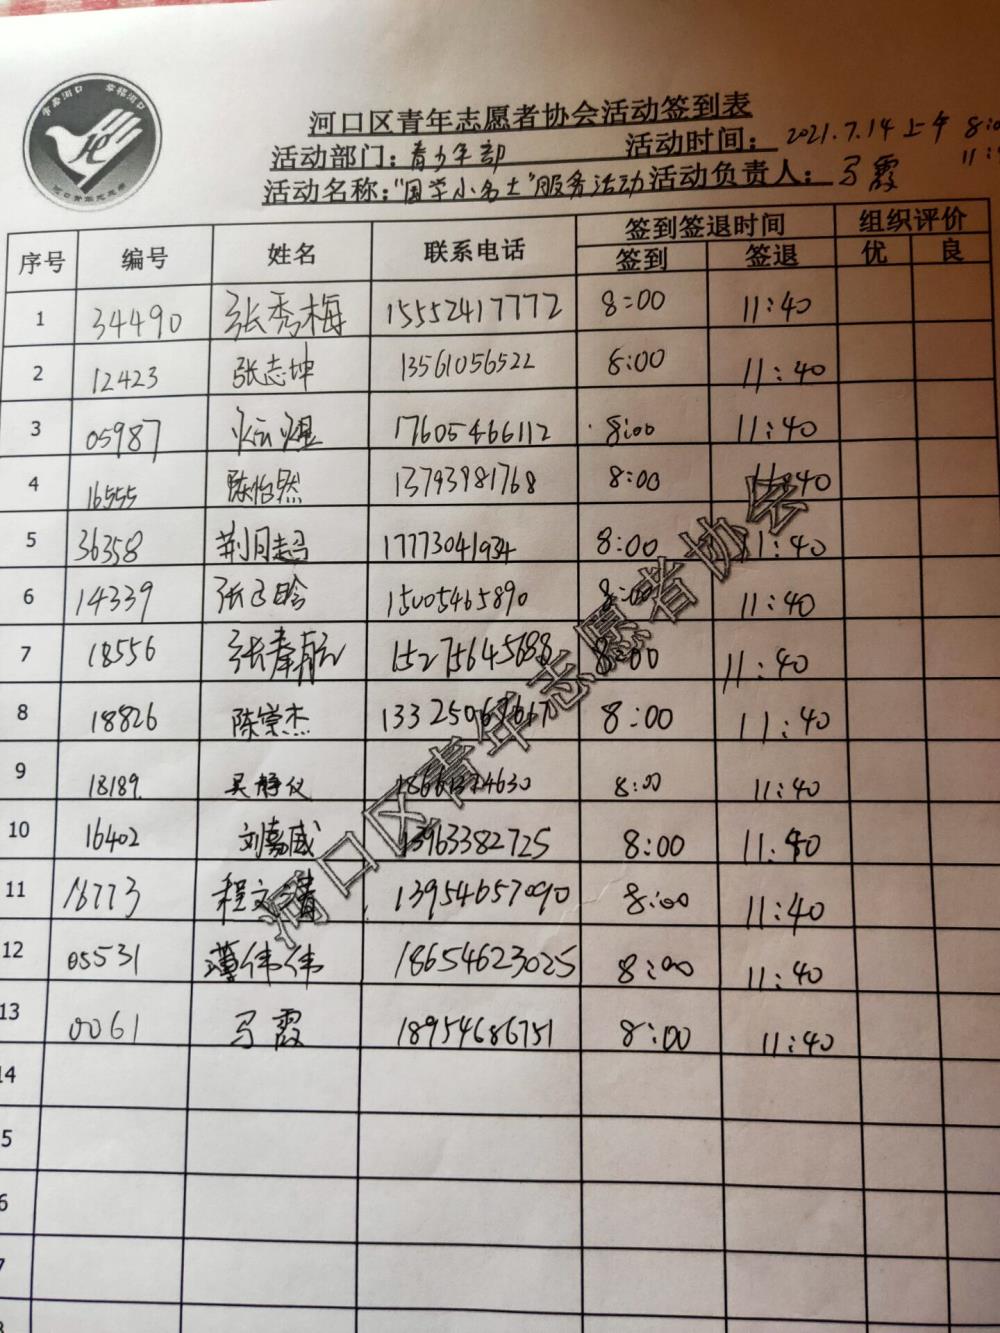 青春河口 幸福河口
河口青年志愿者
河口区青年志愿者协会活动签到表
活动部门：青少年部 活动时间：2021.7.14上午 8:00
活动名称："国学小名士"服务活动 活动负责人：马霞 11:
序号 编号 姓名 联系电话 签到签退时间 组织评价
签到 签退 优 良
1 34490 张秀梅 15552417772 8:00 11:40
2 12423 张志坤 13561056522 8:00 11:40
3 05987 17605466112 8:00 11:40
4 16555 陈怡然 13793981768 8:00 11:40
5 36358 荆同超 17773041934 8:00 11:40
6 14339 张 15005465890 8:00 11:40
7 18556 张春航 15275645688 8:00 11:40
8 18826 陈崇杰 8:00 11:40
9 18189. 吴静仪 8:00 11:40
10 16402 刘嘉威 13963382725 8:00 11:40
11 16773 程文清 13954657090 8:00 11:40
12 05531 薄伟伟 18654623025 8:00 11:40
13 0061 马霞 18954686751 8:00 11:40
14
5
6
7
8
河口区青年志愿者协会